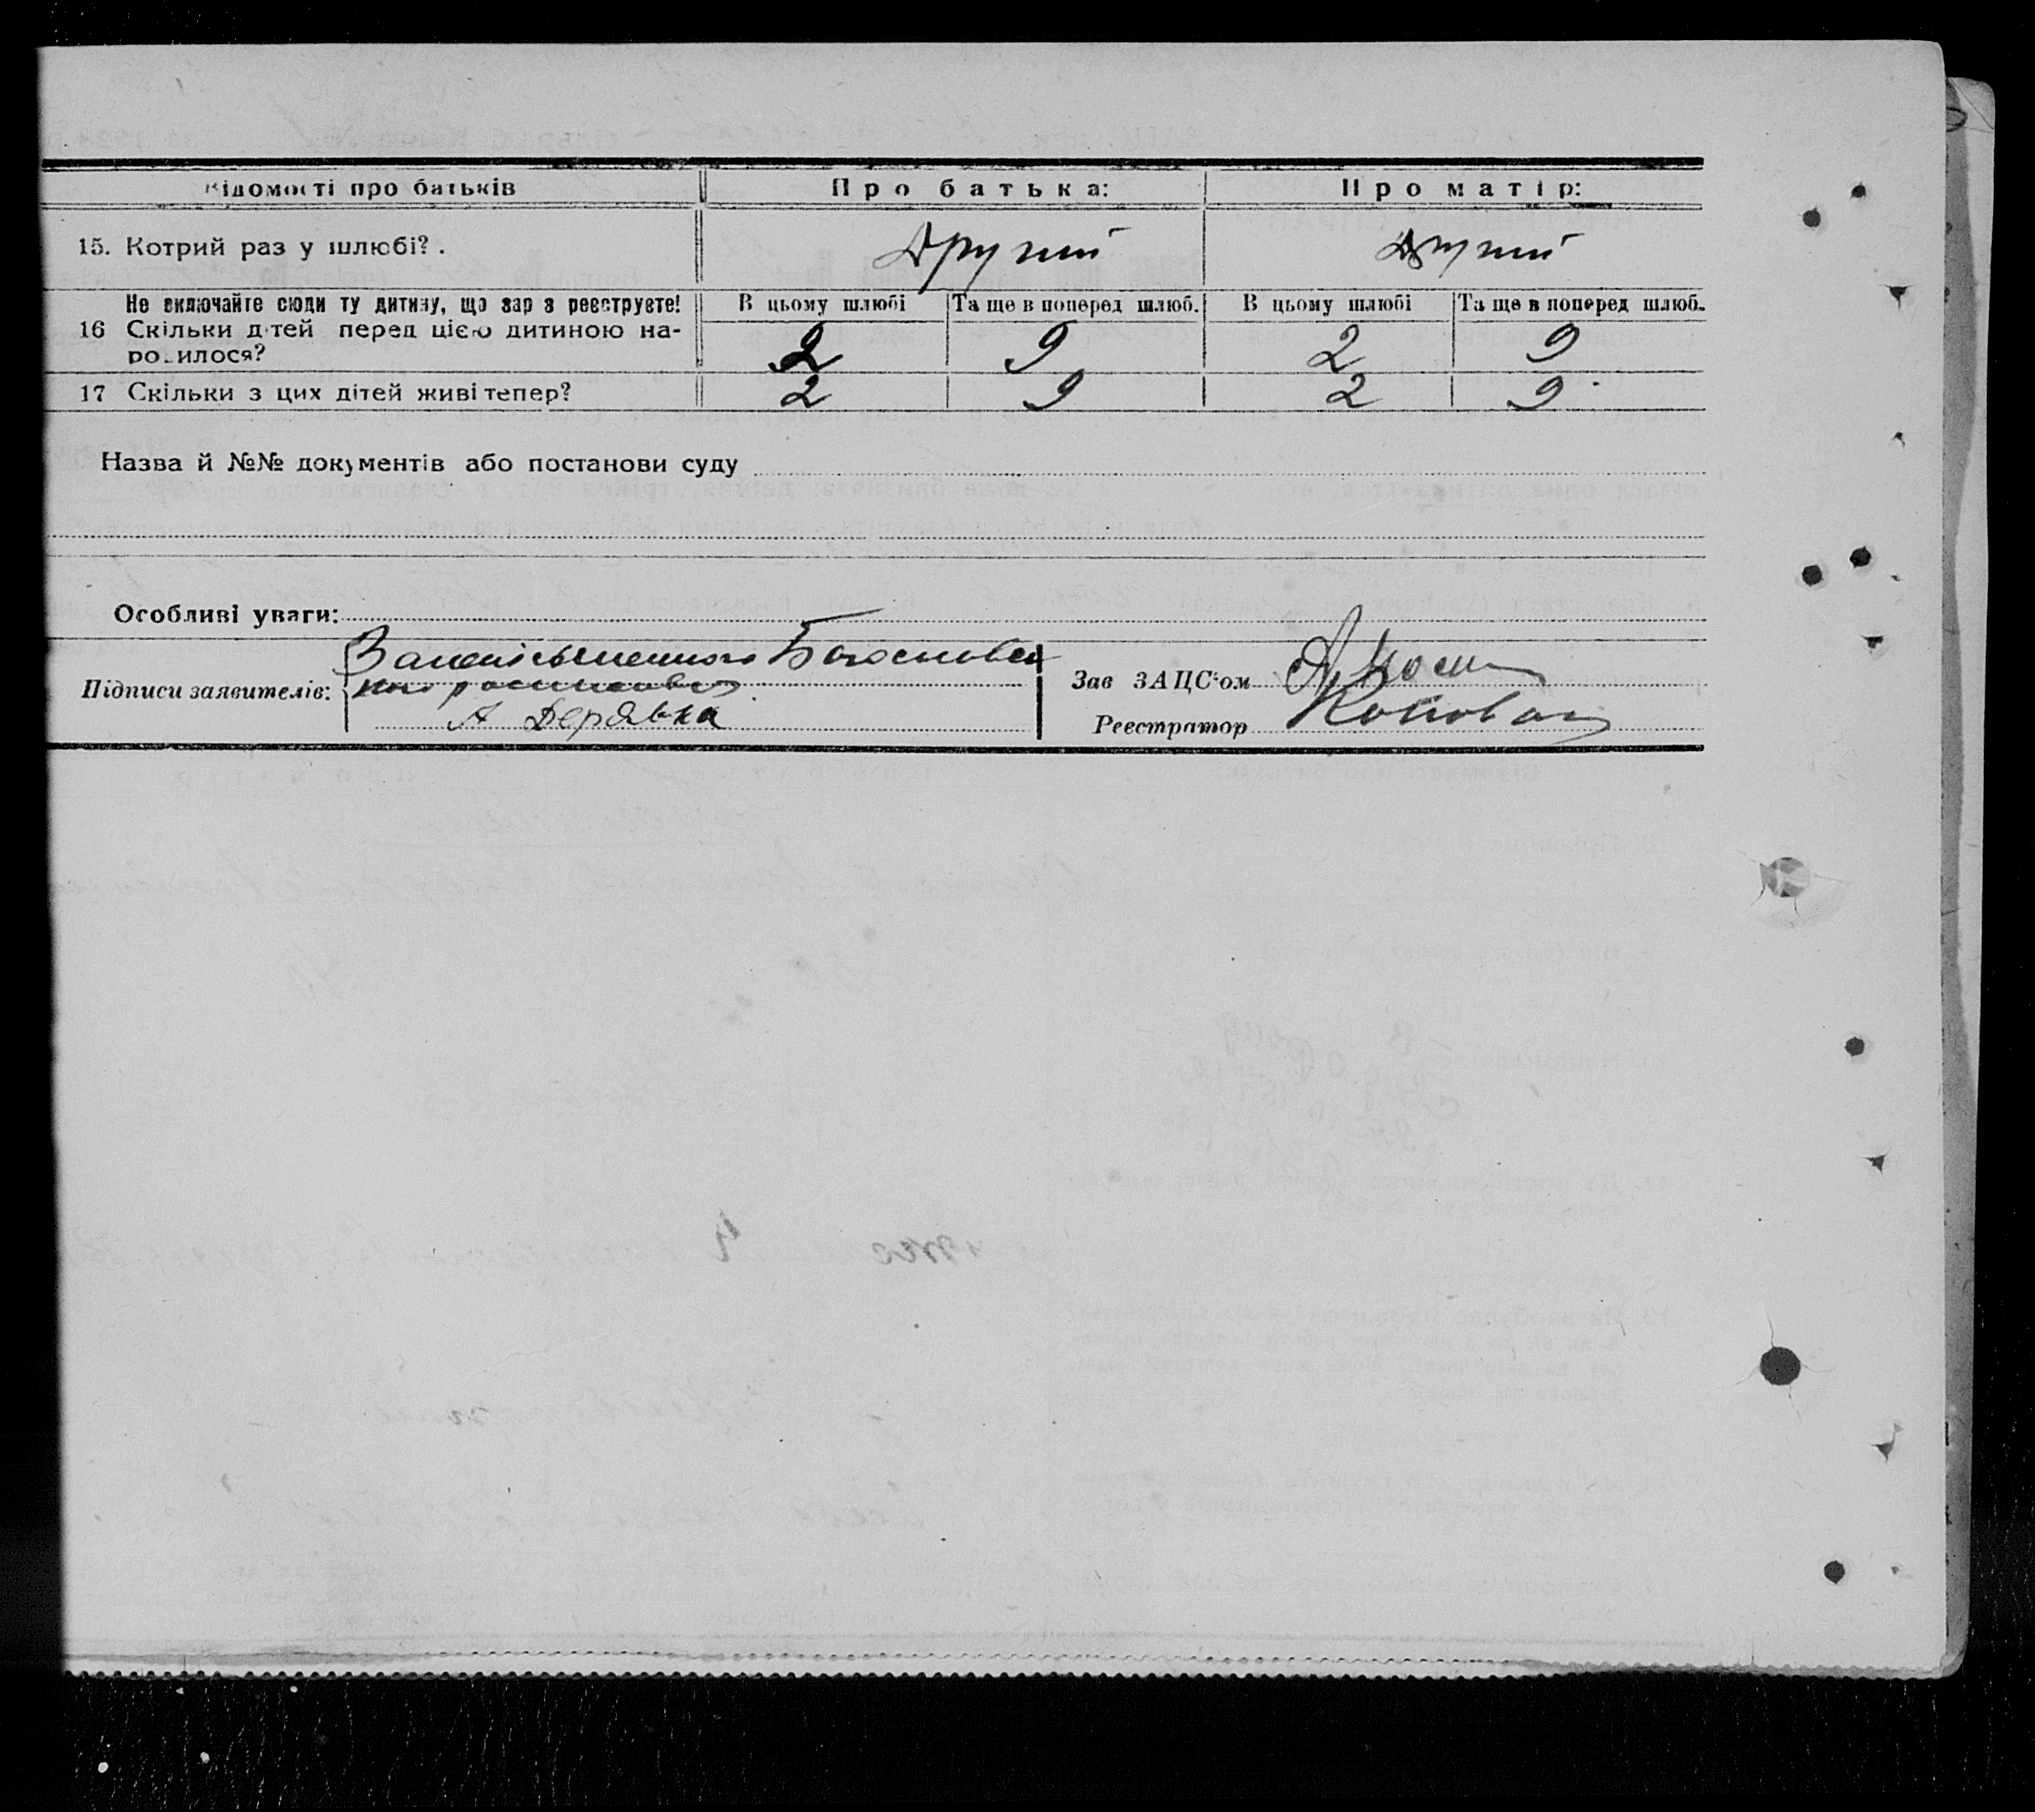 Відомості про батьків
Про батька:
Про матір:
15. Котрий раз у шлюбі? .
Другий
Другий
Не включайте сюди ту дитину, що зараз реєструєте!
В цьому шлюбі
Та ще в поперед шлюб.
В цьому шлюбі
Та ще в поперед шлюб.
16 Скільки дітей перед цією дитиною на-
родилося?
2
9
2
9
17 Скільки з цих дітей живі тепер?
2
9
2
9
Назва й №№ документів або постанови суду
Особливі уваги:
Підписи заявителів:
А Дерявка
Зав ЗАЦС'ом
Реєстратор